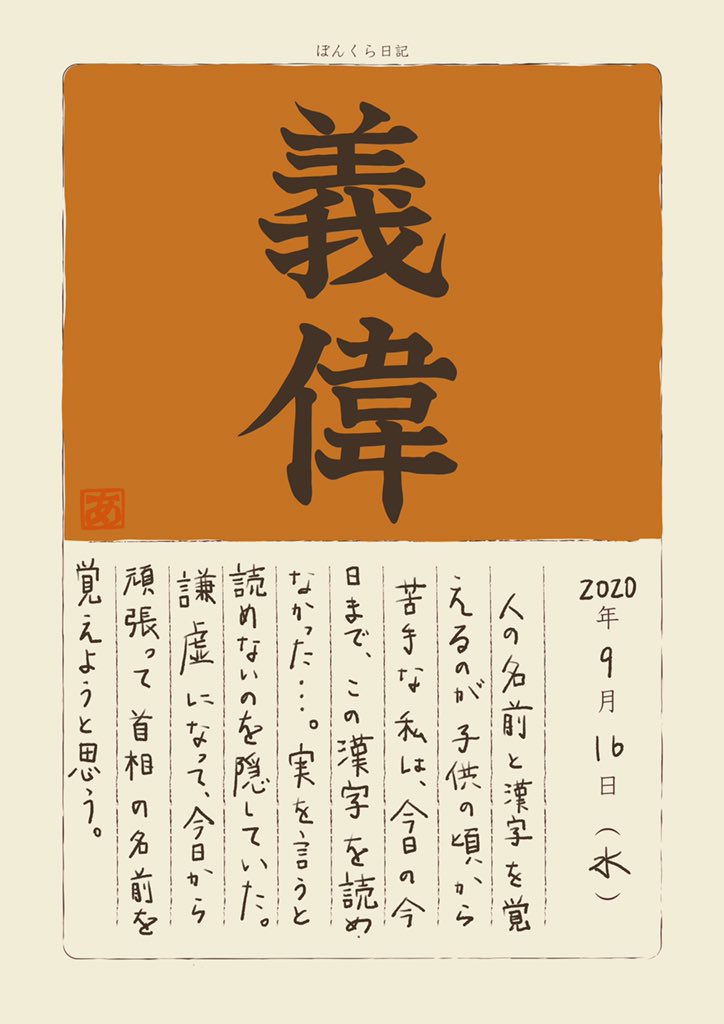 ぼんくら日記
義偉
あ
2020年9月16日(水)
人の名前と漢字を覚
えるのが子供の頃から
苦手な私は、今日の今
日まで、この漢字を読め
なかった…。実を言うと
読めないのを隠していた。
謙虚になって、今日から
頑張って首相の名前を
覚えようと思う。